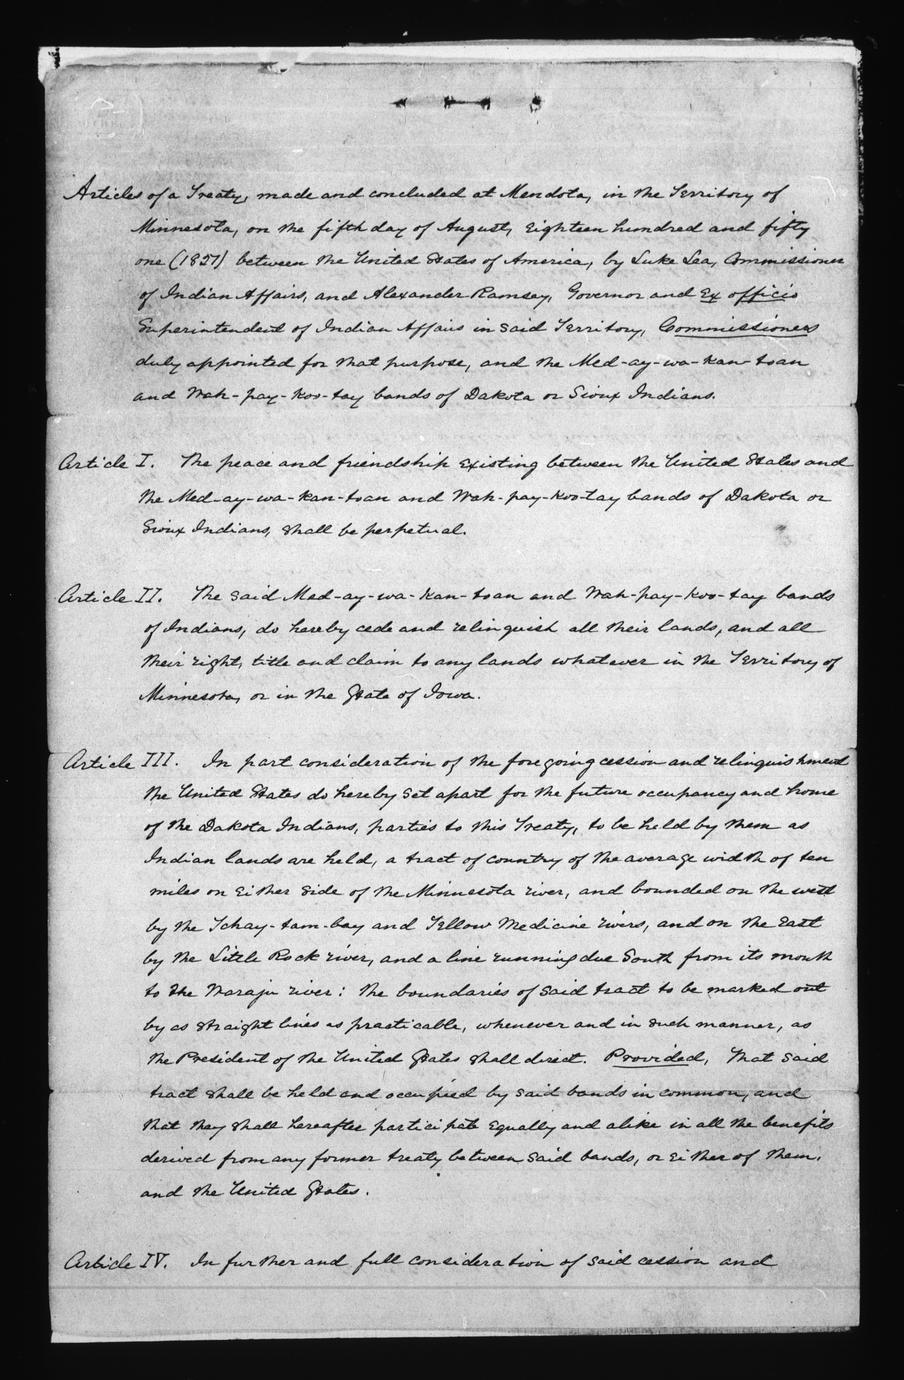 Articles of a Treaty, made and concluded at Mendota, in the Territory of
Minnesota, on the fifth day of August, Eighteen hundred and fifty
one (1851) between the United States of America, by Luke Lea, Commissioner
of Indian Affairs, and Alexander Ramsey, Governor and Ex officio
Superintendent of Indian Affairs in said Territory, Commissioners
duly appointed for that purpose, and the Med-ay-wa-kan-toan
and Wah-pay-koo-tay bands of Dakota or Sioux Indians.
Article I. The peace and friendship existing between the United States and
the Med-ay-wa-kan-toan and Wah-pay-koo-tay bands of Dakota or
Sioux Indians, shall be perpetual.
Article II. The said Med-ay-wa-kan-toan and Wah-pay-koo-tay bands
of Indians, do hereby cede and relinquish all their lands, and all
their right, title and claim to any lands whatever in the Territory of
Minnesota, or in the State of Iowa.
Article III. In part consideration of the foregoing cession and relinquishment
the United States do hereby set apart for the future occupancy and home
of the Dakota Indians, parties to this Treaty, to be held by them as
Indian lands are held, a tract of country of the average width of ten
miles on either side of the Minnesota river, and bounded on the west
by the Tchay-tam-bay and Yellow Medicine rivers, and on the East
by the Little Rock river, and a line running due South from its mouth
to the Waraju river: the boundaries of said tract to be marked out
by as straight lines as practicable, whenever and in such manner, as
the President of the United States shall direct. Provided, That said
tract shall be held and occupied by said bands in common, and
that they shall hereafter participate equally and alike in all the benefits
derived from any former treaty between said bands, or either of them,
and the United States.
Article IV. In further and full consideration of said cession and